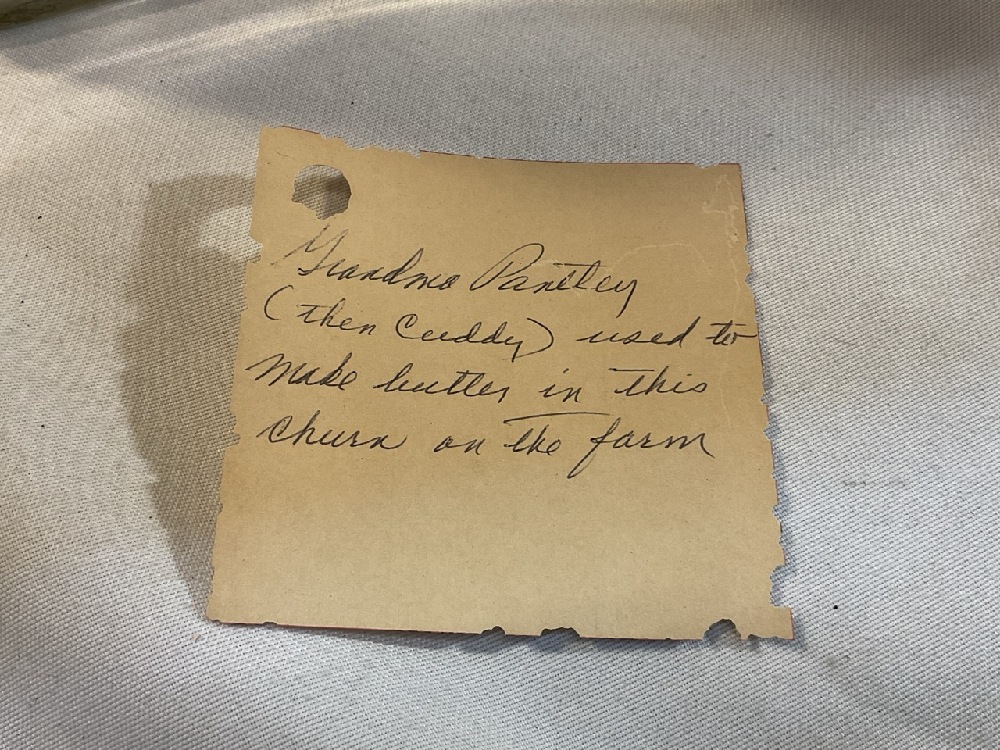 Grandma Pantley
(then Cuddy) used to
make butter in this
churn on the farm